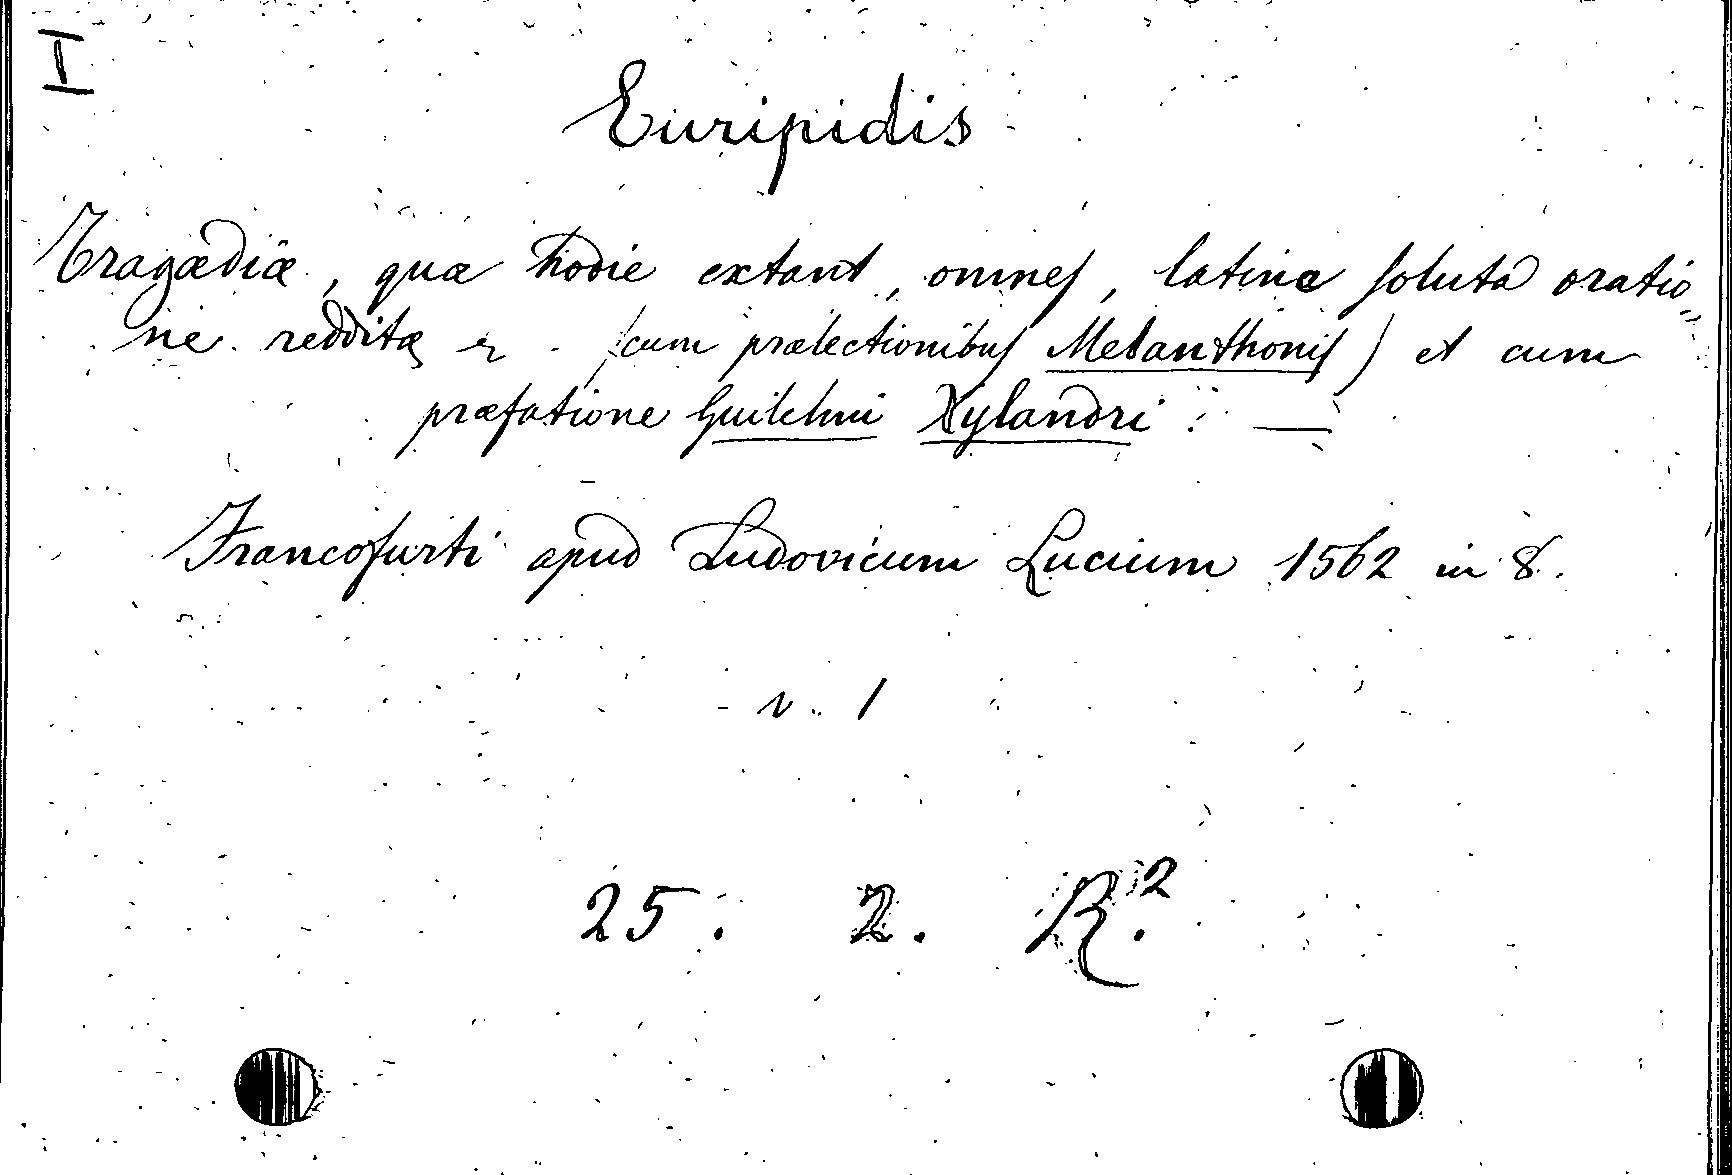 I
Euripidis
Tragœdiæ, quæ hodie extant, omnes, latine soluta oratio
ne redditæ (cum prælectionibus Melanthonis) et cum
præfatione Guilelmi Xylandri : —
Francofurti apud Ludovicum Lucium 1562 in 8.
v. 1
25. 2. R.²